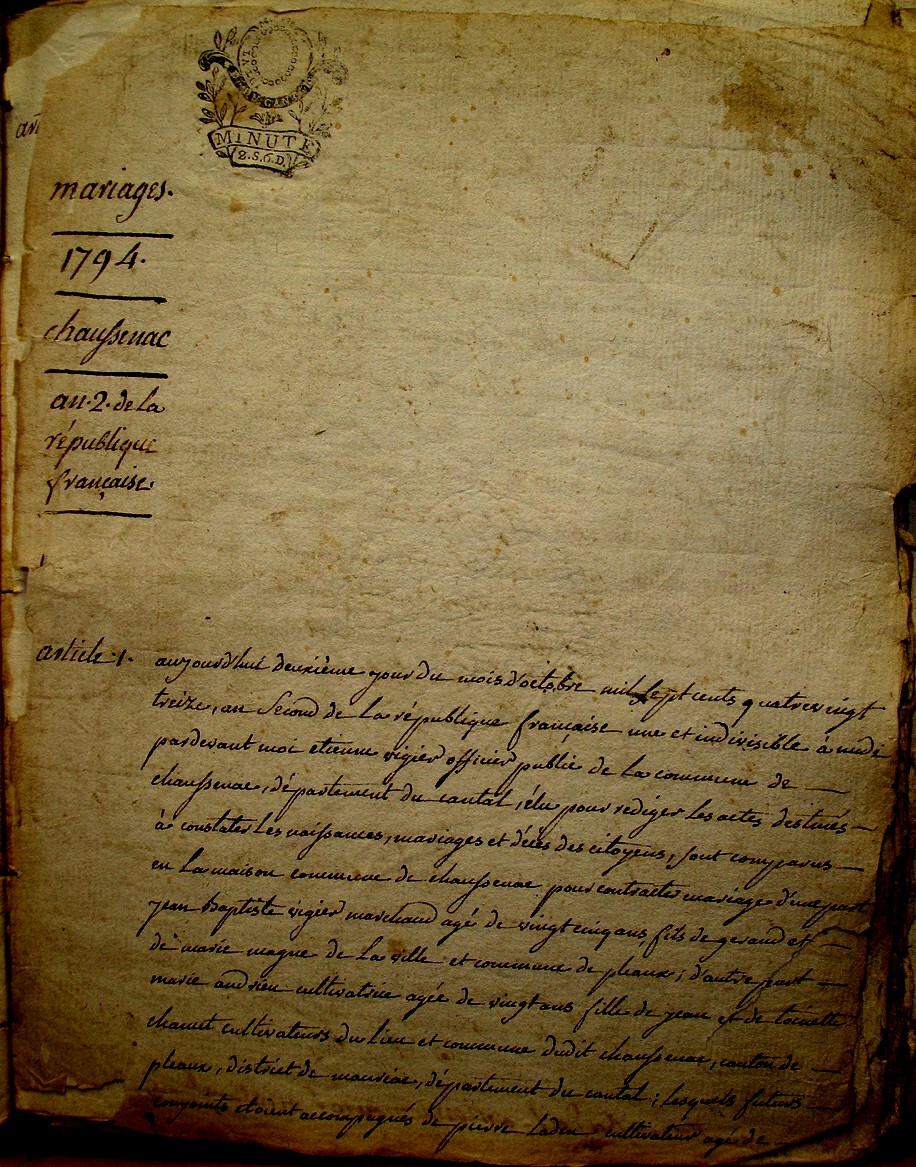 MINUTE
2.S.6.D.
art
mariages.
1794.
chaussenac
an.2. de la
république
française.
article.1.
aujourd'hui deuxième jour du mois d'octobre mil sept cents quatre vingt
treize, an second de la république française une et indivisible à midi
pardevant moi etienne vigier officier public de la commune de
chaussenac, département du cantal, élu pour rediger les actes destinés
à constater les naissances, mariages et décès des citoyens, sont comparus
en la maison commune de chaussenac pour contracter mariage d'une part
jean Baptiste vigier marchand agé de vingt cinq ans, fils de geraud et
de marie magne de la ville et commune de pleaux; d'autre part
marie andrieu cultivatrice agée de vingt ans fille de jean et de toinette
chanut cultivateurs du lieu et commune dudit chaussenac, canton de
pleaux, district de mauriac, département du cantal; lesquels futurs
conjoints etoient accompagnés de pierre cultivateur agé de